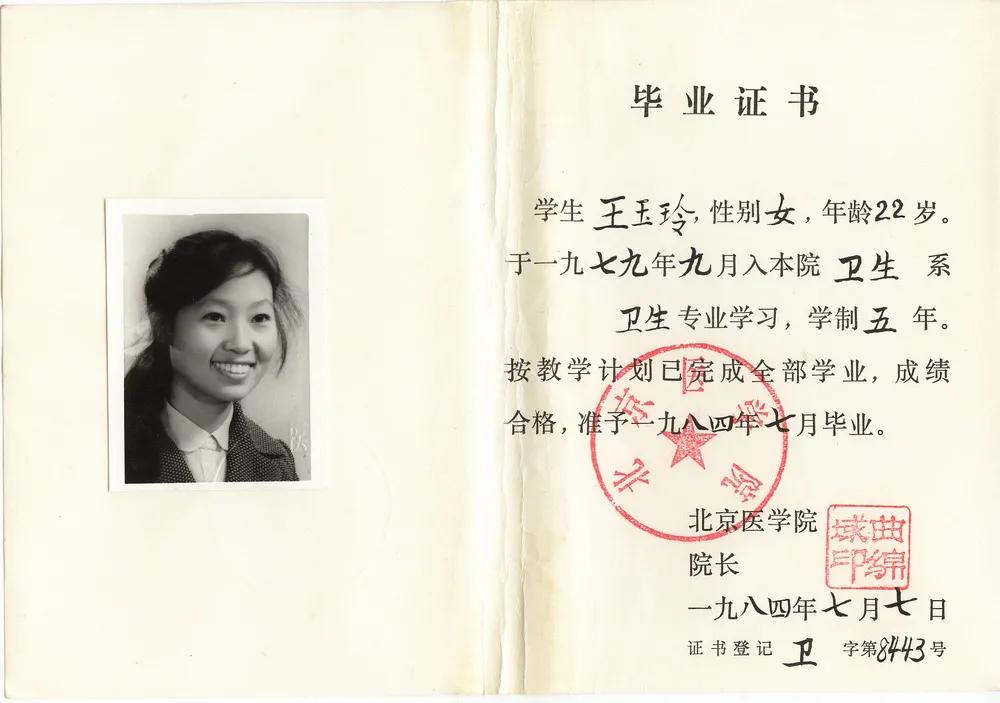 毕业证书
学生 王玉玲，性别女，年龄22岁。
于一九七九年九月入本院 卫生 系
卫生专业学习，学制五年。
按教学计划已完成全部学业，成绩
合格，准予一九八四年七月毕业。
北京医学院
北京医学院
院长
曲绵域印
一九八四年七月七日
证书登记 卫 字第8443号